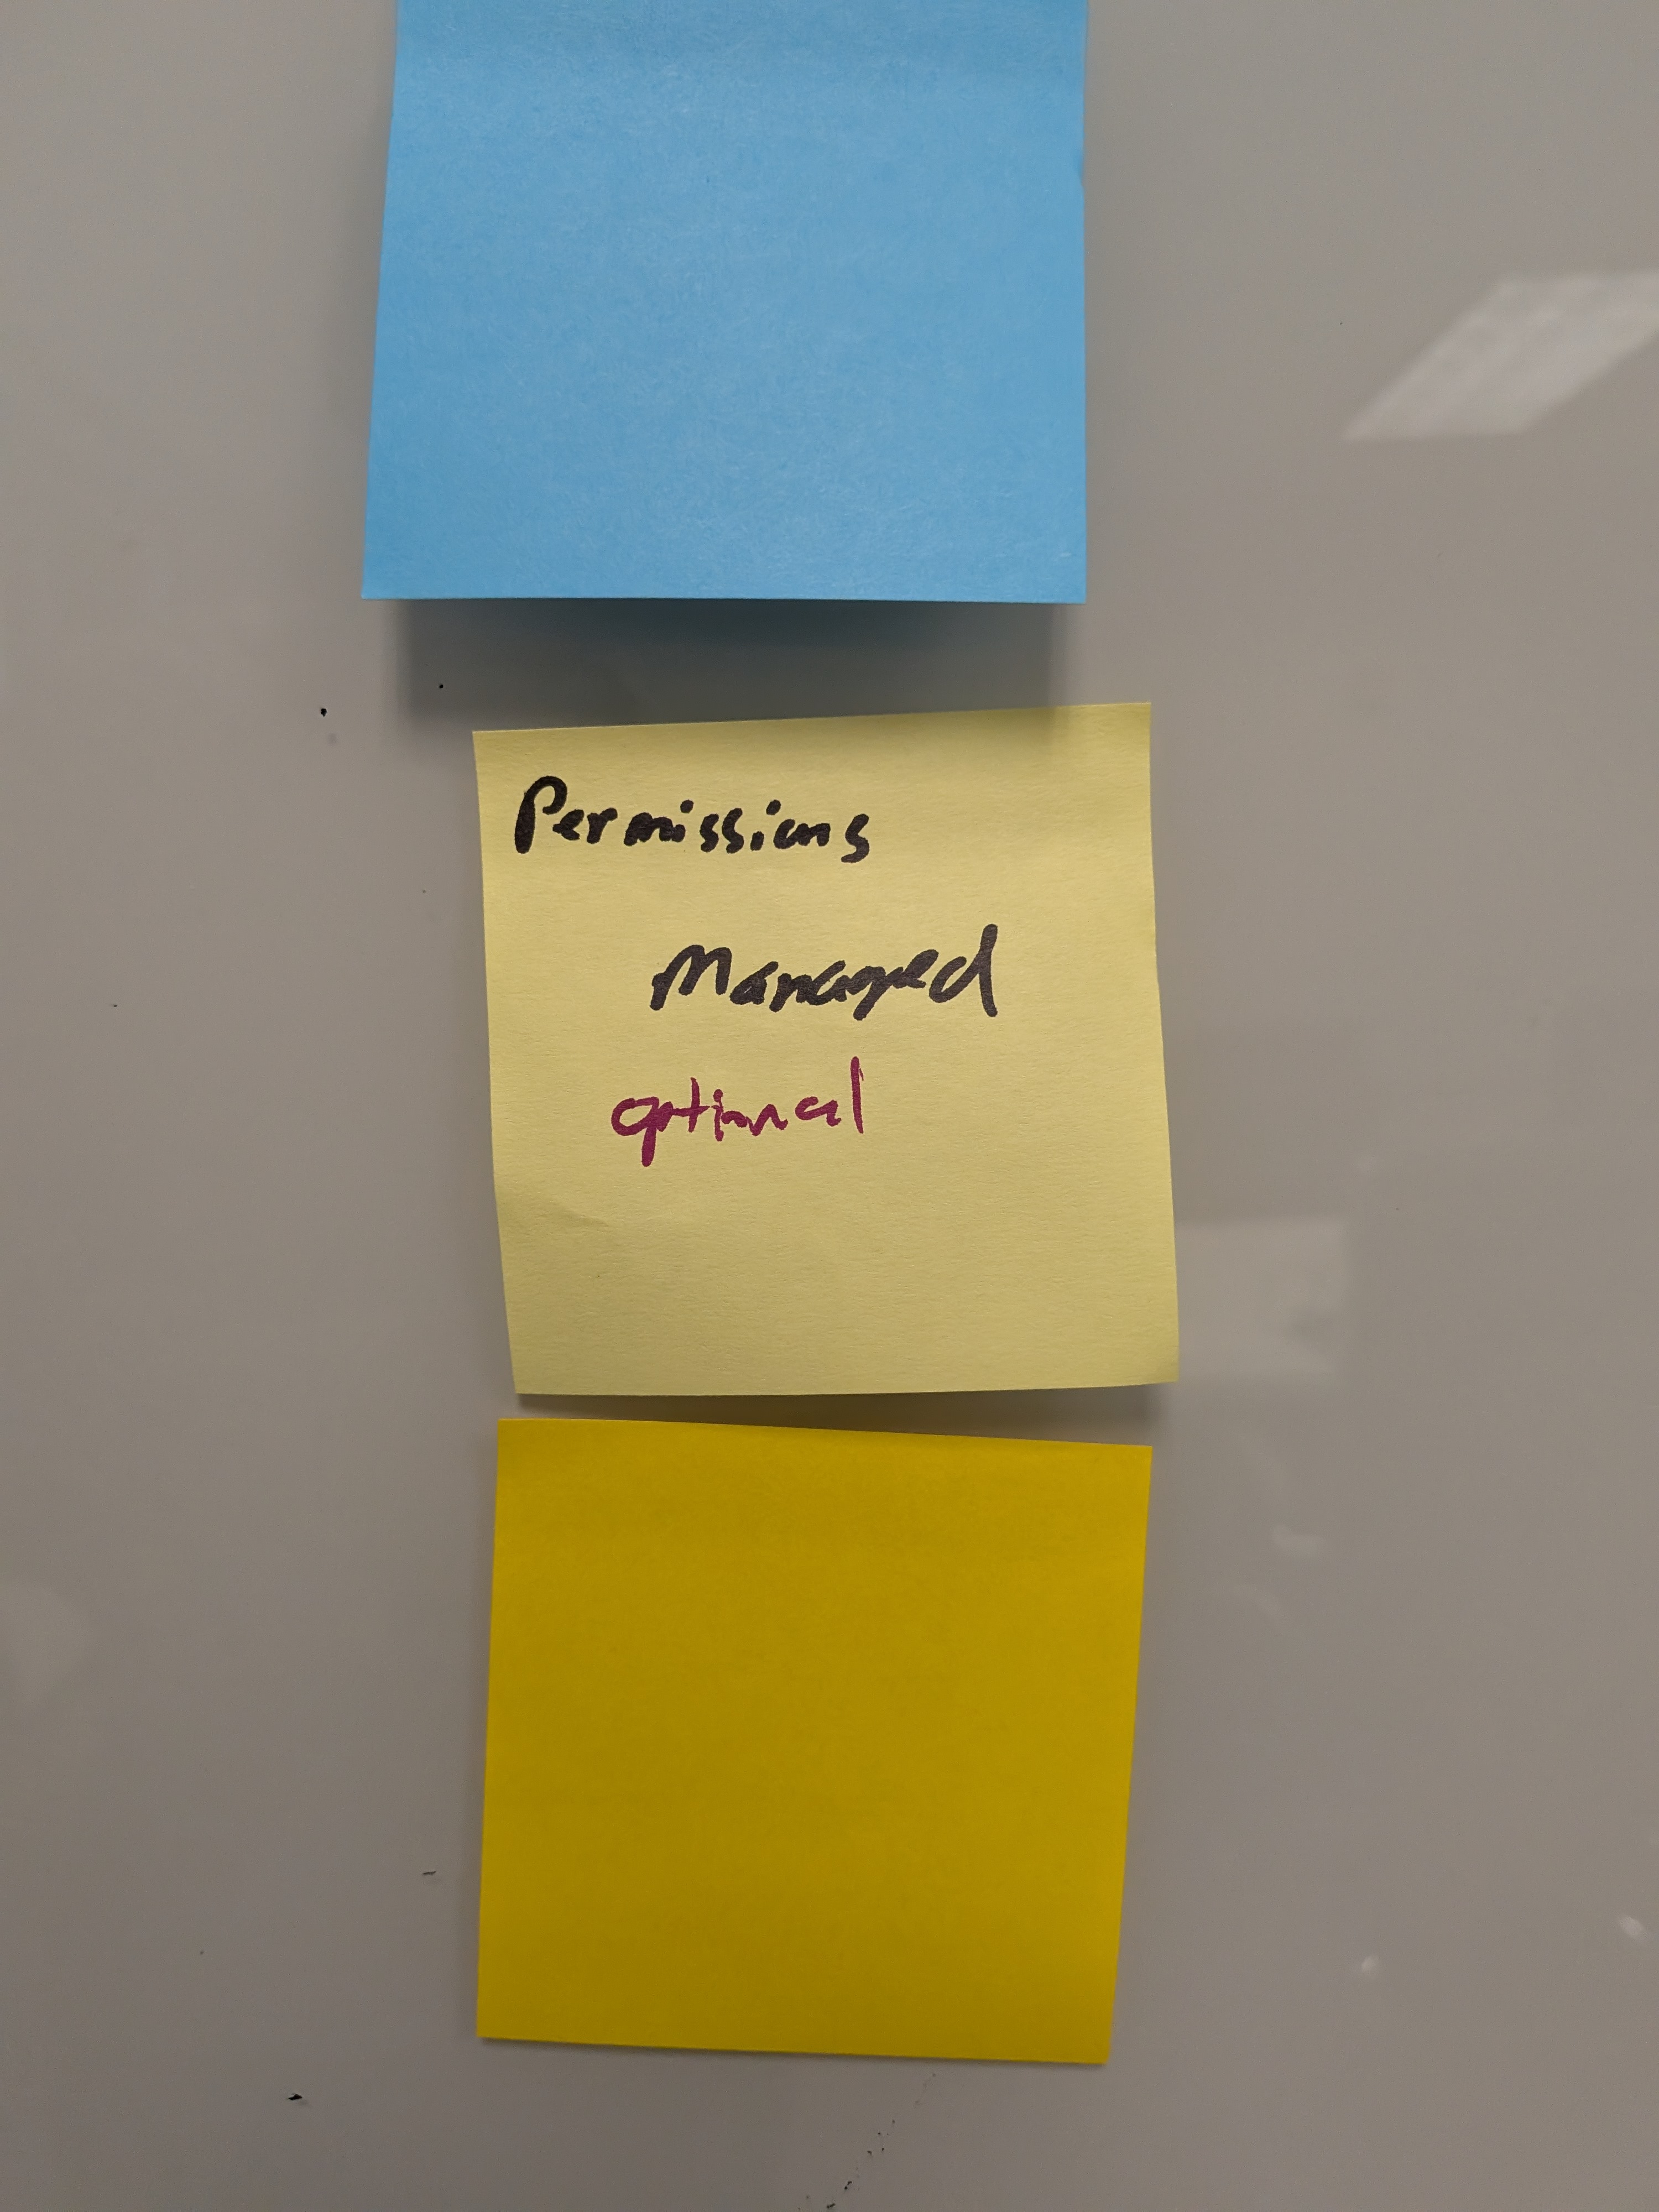 Permissions
Managed
optional